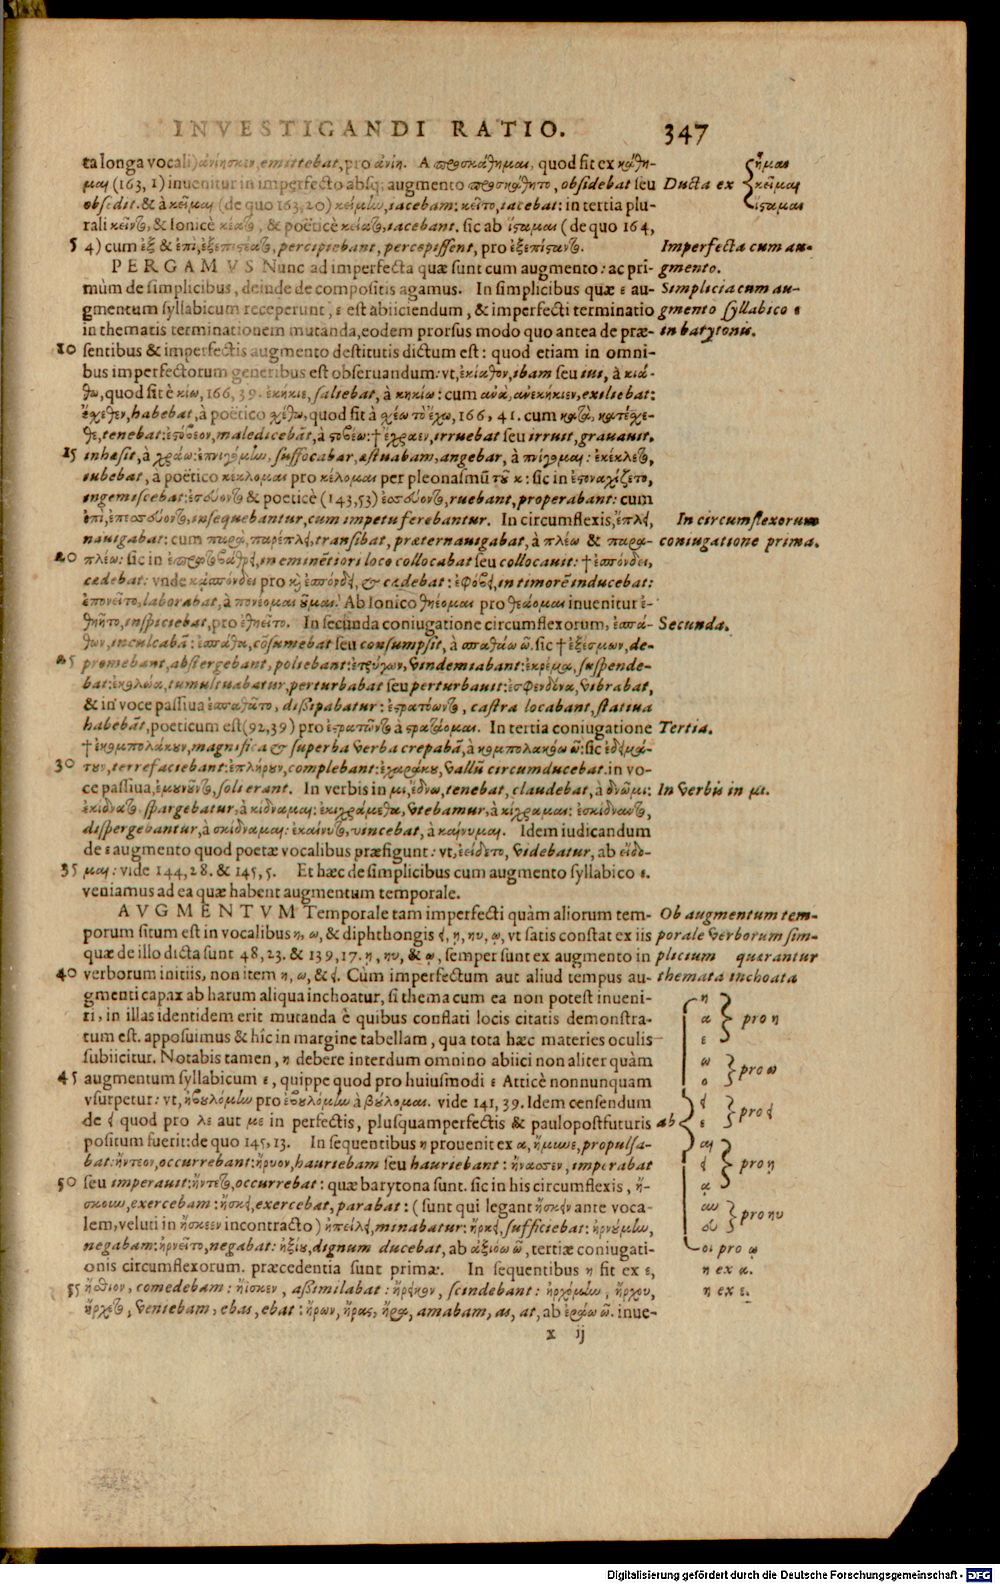 INVESTIGANDI RATIO. 347
ta longa vocali) ἀνίησκεν, emittebat, pro ἀνίη. A προσκάθημαι, quod fit ex κάθη-
μαι (163, 1) inuenitur in imperfecto absq; augmento προσκάθητο, obsidebat seu
obsedit. & à κεῖμαι (de quo 163, 20) κείμην, iacebam: κεῖτο, iacebat: in tertia plu-
rali κεῖντο, & Ionicè κέατο, & poëticè κείατο, iacebant. sic ab ἵσταμαι (de quo 164,
5 4) cum ἐξ & ἐπὶ, ἐξεπιστέατο, percipiebant, percepissent, pro ἐξεπίσταντο.
PERGAMVS Nunc ad imperfecta quæ sunt cum augmento: ac pri-
mùm de simplicibus, deinde de compositis agamus. In simplicibus quæ ε au-
gmentum syllabicum receperunt, ε est abiiciendum, & imperfecti terminatio
in thematis terminationem mutanda, eodem prorsus modo quo antea de præ-
10 sentibus & imperfectis augmento destitutis dictum est: quod etiam in omni-
bus imperfectorum generibus est obseruandum: vt, ἐκίαθον, ibam seu iui, à κιά-
θω, quod fit è κίω, 166, 39. ἐκήκιε, saliebat, à κηκίω: cum ἀνὰ, ἀνεκήκιεν, exiliebat:
ἔχεθεν, habebat, à poëtico χέθω, quod fit à χέω τὸ ἔχω, 166, 41. cum κατὰ, κατέχε-
θε, tenebat: ἐστύφεον, maledicebāt, à στυφέω: † ἔχραεν, irruebat seu irruit, grauauit.
15 inhæsit, à χράω: ἐπνιγόμην, suffocabar, æstuabam, angebar, à πνίγομαι: ἐκέκλετο,
iubebat, à poëtico κέκλομαι pro κέλομαι per pleonasmū τοῦ κ: sic in ἐστοναχίζετο,
ingemiscebat: ἐσεύοντο & poeticè (143, 53) ἐσσεύοντο, ruebant, properabant: cum
ἐπὶ, ἐπεσσεύοντο, insequebantur, cum impetu ferebantur. In circumflexis, ἔπλει,
nauigabat: cum παρὰ, παρέπλει, transibat, præternauigabat, à πλέω & παρα-
20 πλέω: sic in in eminētiori loco collocabat seu collocauit: † ἐσπόνδει,
cædebat: vnde κἀσπόνδει pro κὶ ἐσπόνδει, & cædebat: ἐφόβει, in timorē inducebat:
ἐπονεῖτο, laborabat, à πονέομαι οῦμαι. Ab Ionico θηέομαι pro θεάομαι inuenitur ἐ-
θηῆτο, inspiciebat, pro ἐθηεῖτο. In secunda coniugatione circumflexorum, ἐσπά-
θων, inculcabā: ἐσπάθα, cōsumebat seu consumpsit, à σπαθάω ῶ. sic † ἐξέσμων, de-
25 promebant, abstergebant, poliebant: ἐτρύγων, vindemiabant: ἐκρέμα, suspende-
bat: ἐκυλῴα, tumultuabatur, perturbabat seu perturbauit: ἐσφενδόνα, vibrabat,
& in voce passiua ἐσπαθᾶτο, dissipabatur: ἐστρατόωντο, castra locabant, statiua
habebāt, poeticum est (92, 39) pro ἐστρατῶντο à στρατάομαι. In tertia coniugatione
† ἐκομπολάκουν, magnifica & superba verba crepabā, à κομπολακέω ῶ: sic ἐδειμά-
30 τουν, terrefaciebant: ἐπλήρουν, complebant: ἐχαράκου, vallū circumducebat. in vo-
ce passiua, ἐμουνοῦντο, soli erant. In verbis in μι, ἔδυω, tenebat, claudebat, à δνῶμι:
ἐκίδνατο spargebatur, à κίδναμαι: ἐκιχράμεθα, vtebamur, à κίχραμαι: ἐσκίδναντο,
dispergebantur, à σκίδναμαι: ἐκαίνυτο, vincebat, à καίνυμαι. Idem iudicandum
de ε augmento quod poetæ vocalibus præfigunt: vt, ἐείδετο, videbatur, ab εἴδο-
35 μαι: vide 144, 28. & 145, 5. Et hæc de simplicibus cum augmento syllabico ε.
veniamus ad ea quæ habent augmentum temporale.
AVGMENTVM Temporale tam imperfecti quàm aliorum tem-
porum situm est in vocalibus η, ω, & diphthongis ει, ῃ, ηυ, ῳ, vt satis constat ex iis
quæ de illo dicta sunt 48, 23. & 139, 17. η, ηυ, & ῳ, semper sunt ex augmento in
40 verborum initiis, non item η, ω, & ει. Cùm imperfectum aut aliud tempus au-
gmenti capax ab harum aliqua inchoatur, si thema cum ea non potest inueni-
ri, in illas identidem erit mutanda è quibus conflati locis citatis demonstra-
tum est. apposuimus & hîc in margine tabellam, qua tota hæc materies oculis
subiicitur. Notabis tamen, η debere interdum omnino abiici non aliter quàm
45 augmentum syllabicum ε, quippe quod pro huiusmodi ε Atticè nonnunquam
vsurpetur: vt, ἠβουλόμην pro ἐβουλόμην à βούλομαι. vide 141, 39. Idem censendum
de ει quod pro λε aut με in perfectis, plusquamperfectis & paulopostfuturis
positum fuerit: de quo 145, 13. In sequentibus η prouenit ex α, ἤμυνε, propulsa-
bat: ἤντεον, occurrebant: ἤρυον, hauriebam seu hauriebant: ἤνασσεν, imperabat
50 seu imperauit: ἤντετο, occurrebat: quæ barytona sunt. sic in his circumflexis, ἤ-
σκουν, exercebam: ἤσκει, exercebat, parabat: (sunt qui legant ἤσκειν ante voca-
lem, veluti in ἤσκεεν incontracto) ἠπείλει, minabatur: ἤρκει, sufficiebat: ἠρνούμην,
negabam: ἠρνεῖτο, negabat: ἠξίου, dignum ducebat, ab ἀξιόω ῶ, tertiæ coniugati-
onis circumflexorum. præcedentia sunt primæ. In sequentibus η fit ex ε,
55 ἤσθιον, comedebam: ἤϊσκεν, assimilabat: ἤρεικον, scindebant: ἠρχόμην, ἤρχου,
ἤρχετο, veniebam, ebas, ebat: ἤρων, ἤρας, ἤρα, amabam, as, at, ab ἐράω ῶ. inue-
x ij
Ducta ex
ἧμαι
κεῖμαι
ἵσταμαι
Imperfecta cum au-
gmento.
Simplicia cum au-
gmento syllabico ε
in barytonis.
In circumflexorum
coniugatione prima.
Secunda.
Tertia.
In verbis in μι.
Ob augmentum tem-
porale verborum sim-
plicium quærantur
themata inchoata
ab
η
α
ε
pro η
ω
ο
pro ω
ει
ε
pro ει
αι
ει
ᾳ
pro ῃ
αυ
ευ
pro ηυ
οι pro ῳ
η ex α.
η ex ε.
Digitalisierung gefördert durch die Deutsche Forschungsgemeinschaft - DFG